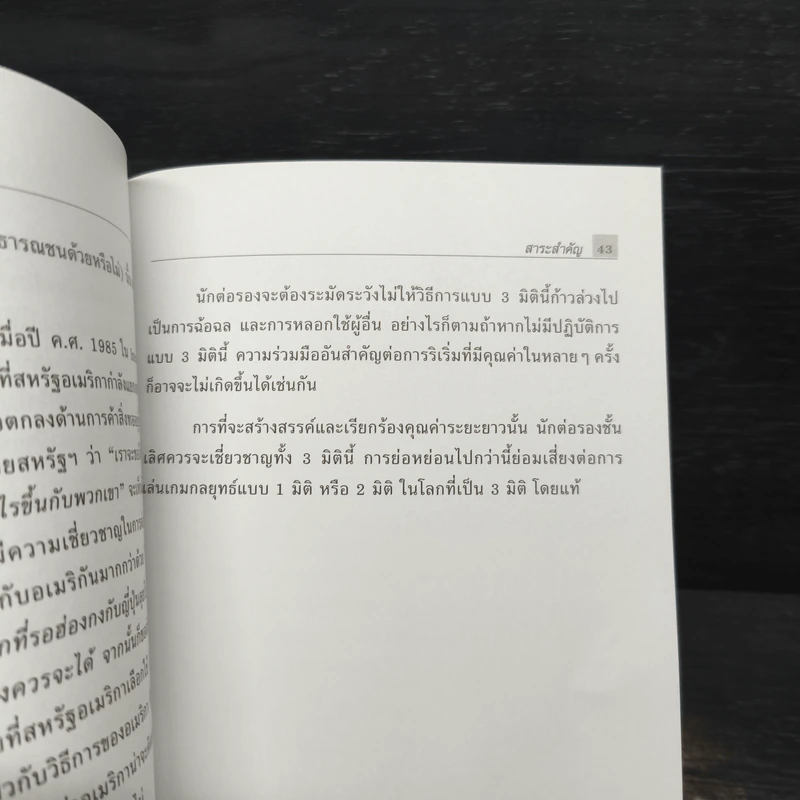 ธารณชนด้วยหรือไม่)
มื่อปี ค.ศ. 1985 ใน
ที่สหรัฐอเมริกากำลัง
อตกลงด้านการค้าสิ่งทอ
ยสหรัฐฯ ว่า “เราจะ
ไรขึ้นกับพวกเขา”
มีความเชี่ยวชาญในการ
กับอเมริกันมากกว่าด้วย
กที่รอฮ่องกงกับญี่ปุ่น
งควรจะได้ จากนั้นก็
ที่สหรัฐอเมริกาเลือก
วกับวิธีการของอเมริกา
อเมริกาน่าจะ
สาระสำคัญ 43
นักต่อรองจะต้องระมัดระวังไม่ให้วิธีการแบบ 3 มิตินี้ก้าวล่วงไป
เป็นการฉ้อฉล และการหลอกใช้ผู้อื่น อย่างไรก็ตามถ้าหากไม่มีปฏิบัติการ
แบบ 3 มิตินี้ ความร่วมมืออันสำคัญต่อการริเริ่มที่มีคุณค่าในหลายๆ ครั้ง
ก็อาจจะไม่เกิดขึ้นได้เช่นกัน
การที่จะสร้างสรรค์และเรียกร้องคุณค่าระยะยาวนั้น นักต่อรองชั้น
เลิศควรจะเชี่ยวชาญทั้ง 3 มิตินี้ การย่อหย่อนไปกว่านี้ย่อมเสี่ยงต่อการ
เล่นเกมกลยุทธ์แบบ 1 มิติ หรือ 2 มิติ ในโลกที่เป็น 3 มิติ โดยแท้